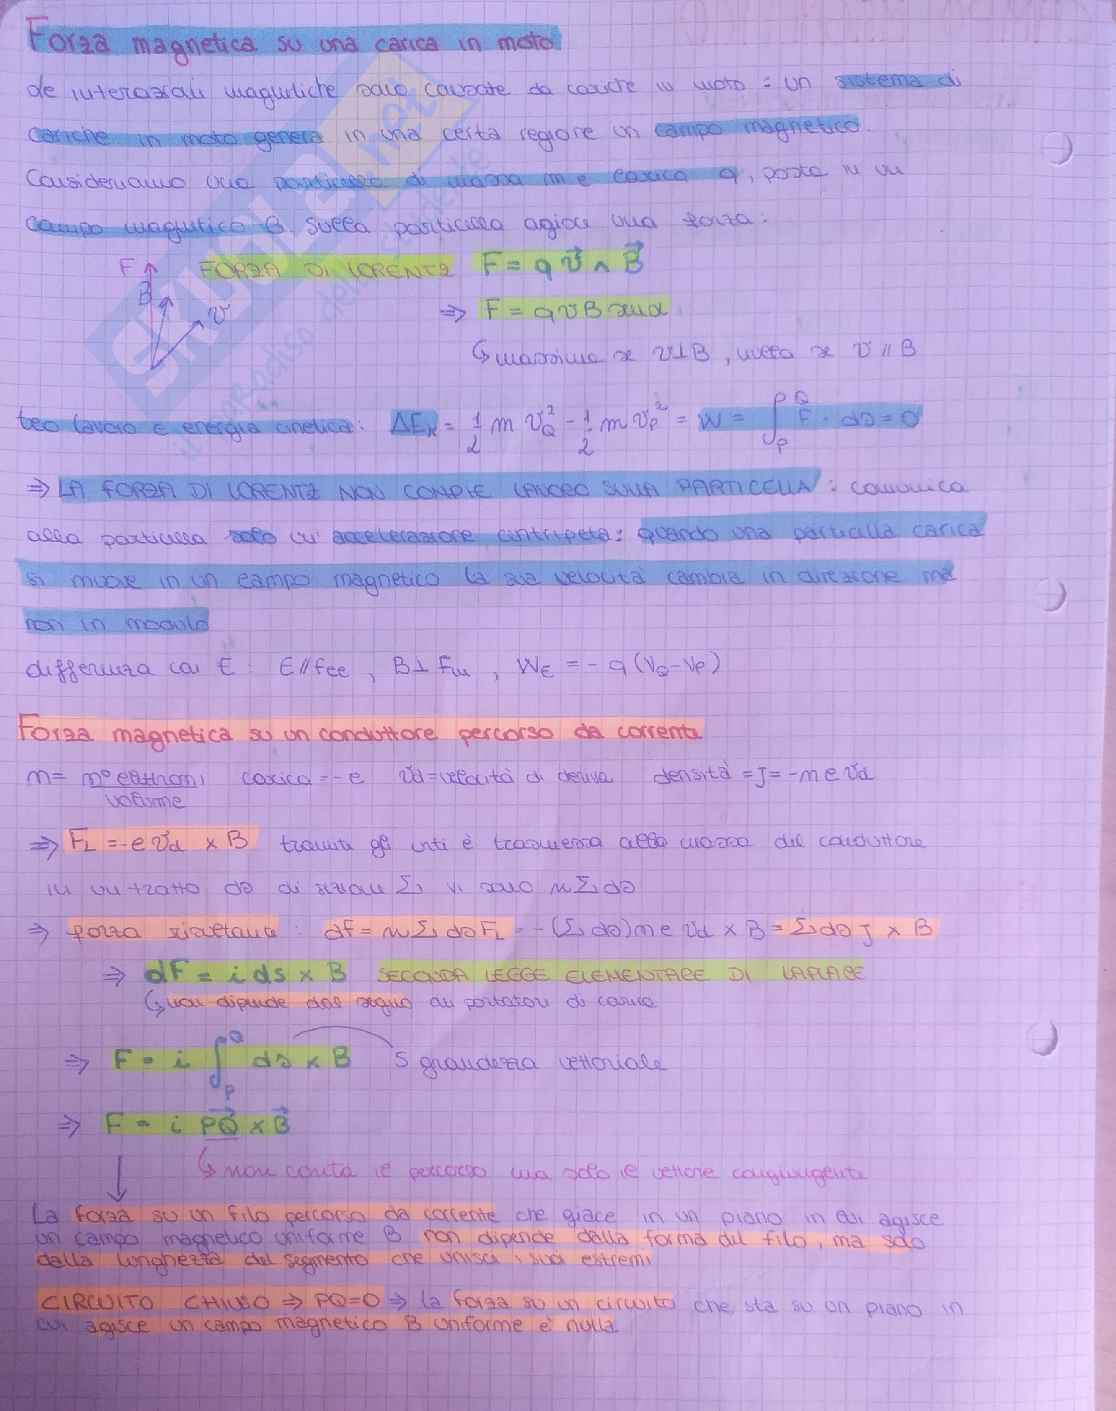 Forza magnetica su una carica in moto
le interazioni magnetiche sono causate da cariche in moto: un sistema di
cariche in moto genera in una certa regione un campo magnetico.
Consideriamo una particella di massa m e carica q, posta in un
campo magnetico B. Sulla particella agisce una forza:
F B v FORZA DI LORENTZ F = q v ∧ B
⇒ F = qvB senα
↳ massima se v⊥B, nulla se v // B
teo lavoro e energia cinetica: ΔEk = 1/2 m vQ² - 1/2 m vP² = W = ∫PQ F · ds = 0
⇒ LA FORZA DI LORENTZ NON COMPIE LAVORO SULLA PARTICELLA: comunica
alla particella solo un' accelerazione centripeta: quando una particella carica
si muove in un campo magnetico la sua velocità cambia in direzione ma
non in modulo
differenza con E: E // Fel, B⊥Fm, WE = - q (VQ - VP)
Forza magnetica su un conduttore percorso da corrente
n = n° elettroni / volume carica = -e vd = velocità di deriva densità = J = -n e vd
⇒ FL = -e vd × B tramite gli urti è trasmessa alla massa del conduttore
in un tratto ds di sezione Σ, vi sono n Σ ds
⇒ forza risultante: dF = n Σ ds FL = -(Σ ds) n e vd × B = Σ ds J × B
⇒ dF = i ds × B SECONDA LEGGE ELEMENTARE DI LAPLACE
↳ non dipende dal segno dei portatori di carica
⇒ F = i ∫PQ ds × B grandezza vettoriale
⇒ F = i PQ × B
↳ non conta il percorso ma solo il vettore congiungente
La forza su un filo percorso da corrente che giace in un piano in cui agisce
un campo magnetico uniforme B non dipende dalla forma del filo, ma solo
dalla lunghezza del segmento che unisce i suoi estremi
CIRCUITO CHIUSO ⇒ PQ=0 ⇒ la forza su un circuito che sta su un piano in
cui agisce un campo magnetico B uniforme è nulla.
SKUOLA.net